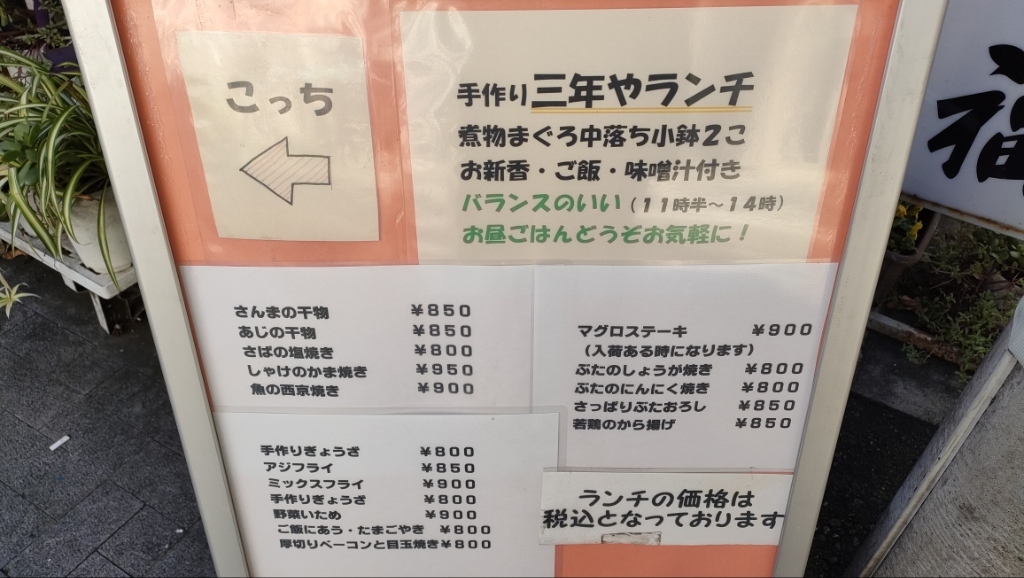 こっち
手作り三年やランチ
煮物まぐろ中落ち小鉢2こ
お新香・ご飯・味噌汁付き
バランスのいい（11時半～14時）
お昼ごはんどうぞお気軽に！
さんまの干物 ¥850
あじの干物 ¥850
さばの塩焼き ¥800
しゃけのかま焼き ¥950
魚の西京焼き ¥900
マグロステーキ ¥900
（入荷ある時になります）
ぶたのしょうが焼き ¥800
ぶたのにんにく焼き ¥800
さっぱりぶたおろし ¥850
若鶏のから揚げ ¥850
手作りぎょうざ ¥800
アジフライ ¥850
ミックスフライ ¥900
手作りぎょうざ ¥800
野菜いため ¥900
ご飯にあう・たまごやき ¥800
厚切りベーコンと目玉焼き¥800
ランチの価格は
税込となっております